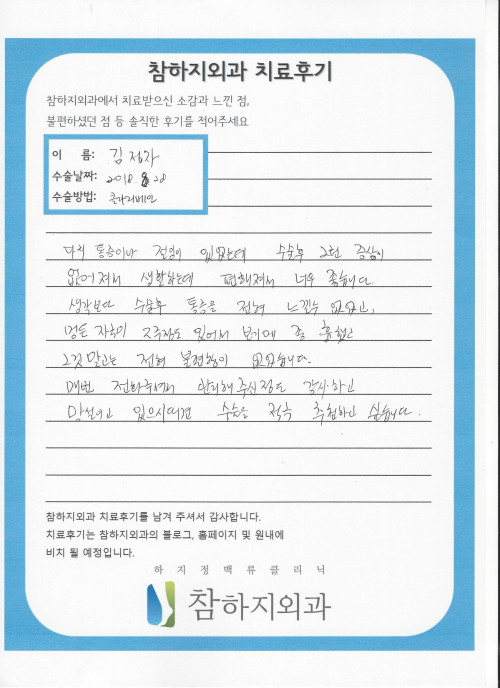 참하지외과 치료후기
참하지외과에서 치료받으신 소감과 느낀 점,
불편하셨던 점 등 솔직한 후기를 적어주세요
이 름: 김정자
수술날짜: 2018. 8. 28
수술방법: 클라리베인
다리 통증이나 저림이 있었는데 수술후 그런 증상이
없어져서 생활하는데 편해져서 너무 좋습니다
생각보다 수술후 통증을 전혀 느낄수 없었고,
멍든 자국이 2주정도 있어서 보기에 좀 흉했고
그것 말고는 전혀 불편함이 없었습니다.
매번 전화주셔서 관리해주신 점도 감사하고
망설이고 있으시다면 수술을 적극 추천하고 싶습니다.
참하지외과 치료후기를 남겨 주셔서 감사합니다.
치료후기는 참하지외과의 블로그, 홈페이지 및 원내에
비치 될 예정입니다.
하지정맥류클리닉
참하지외과